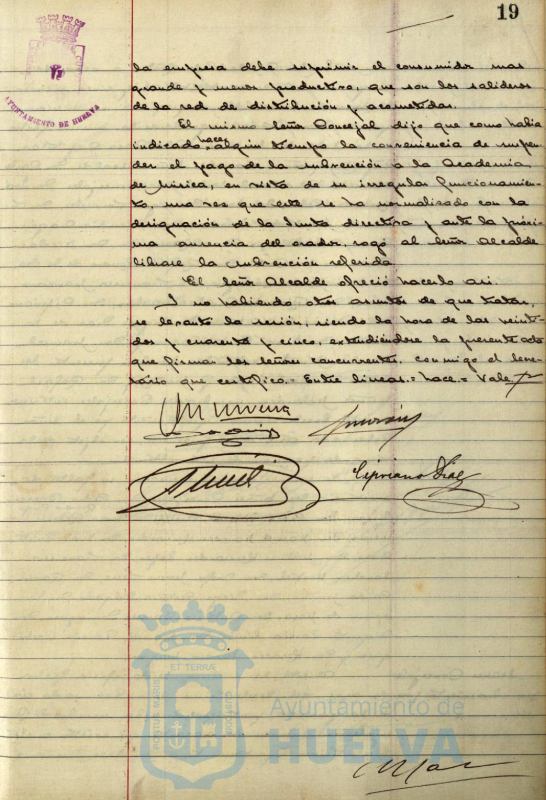 19
AYUNTAMIENTO DE HUELVA
la empresa debe suprimir el consumidor mas
grande y menos productivo, que son los salideros
de la red de distribución y acometidas.
El mismo Señor Concejal dijo que como habia
indicado hace algun tiempo la conveniencia de suspen-
der el pago de la subvención a la Academia
de Música, en vista de su irregular funcionamien-
to, una vez que este se ha normalizado con la
designación de la Junta directiva y ante la próxi-
ma ausencia del orador, rogó al Señor Alcalde
librase la subvención referida
El Señor Alcalde ofreció hacerlo asi.
Y no habiendo otros asuntos de que tratar,
se levantó la sesión, siendo la hora de las veinti-
dos y cuarenta y cinco, extendiéndose la presente acta
que firman los señores concurrentes conmigo el Secre-
tario que certifico.= Entre lineas.= hace.= Vale
Cipriano Díaz
ET TERRÆ
PORTUS MARIS
CUSTODIA
Ayuntamiento de
HUELVA